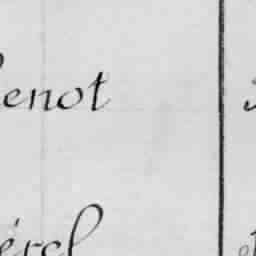 enot
érel